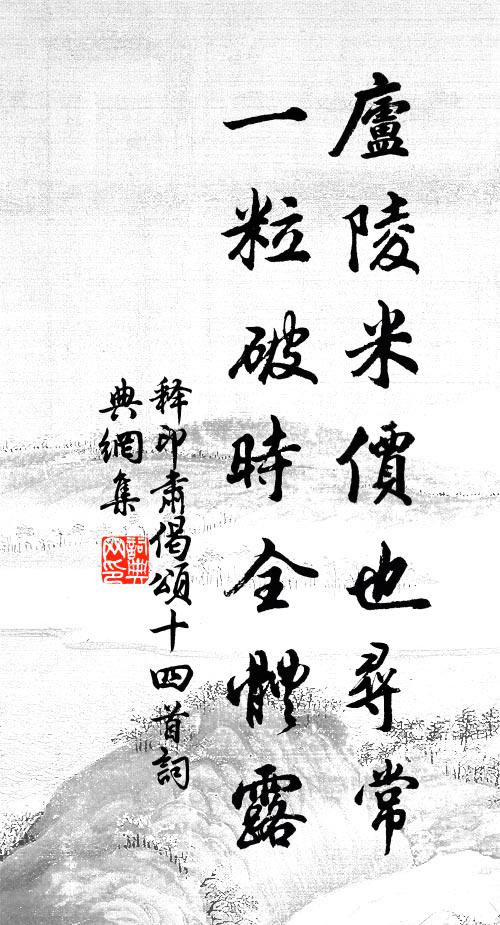 廬陵米價也尋常
一粒破時全體露
释印肅偈頌十四首詞
典網集
詞典
网印